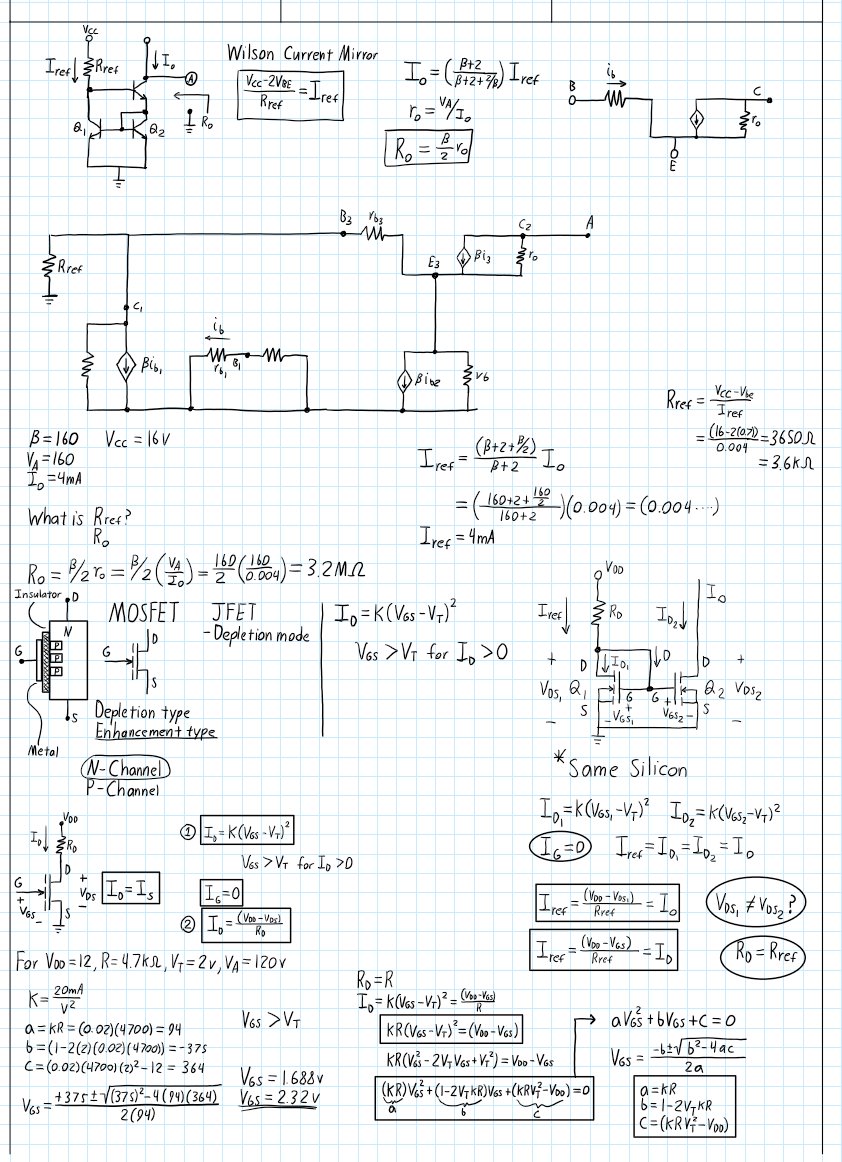 Vcc
Iref
Rref
Io
A
Ro
Q1
Q2
Wilson Current Mirror
(Vcc-2VBE)/Rref = Iref
Io = ((β+2)/(β+2+2/β)) Iref
ro = VA/Io
Ro = β/2 ro
B
ib
C
ro
E
B3
rb3
C2
A
Rref
E3
βi3
ro
C1
ib
βib1
rb1
B1
βib2
rb
Rref = (Vcc-Vbe)/Iref
= (16-2(0.7))/0.004 = 3650Ω
= 3.6kΩ
β=160 Vcc=16v
VA=160
Io=4mA
Iref = (β+2+β/2)/(β+2) Io
= ((160+2+160/2)/(160+2))(0.004) = (0.004...)
Iref = 4mA
What is Rref?
Ro
Ro = β/2 ro = β/2 (VA/Io) = 160/2 (160/0.004) = 3.2MΩ
Insulator
D
N
P
P
P
G
S
Metal
MOSFET JFET
-Depletion mode
G
D
S
Depletion type
Enhancement type
N-Channel
P-Channel
ID = K(VGS-VT)²
VGS > VT for ID > 0
VDD
Iref
RD
ID2
IO
+
VDS1
-
D
ID1
Q1
S
D
G
G
+
-VGS1
+
VGS2-
D
Q2
S
+
VDS2
-
*Same Silicon
ID1 = K(VGS1-VT)² ID2 = K(VGS2-VT)²
IG=0 Iref = ID1 = ID2 = IO
Iref = (VDD-VDS1)/Rref = Io
VDS1 ≠ VDS2?
Iref = (VDD-VGS)/Rref = ID
RD = Rref
VDD
ID
RD
D
G
+
VGS-
S
+
VDS
-
ID = IS
① ID = K(VGS-VT)²
VGS > VT for ID > 0
IG=0
② ID = (VDD-VDS)/RD
For VDD=12, R=4.7kΩ, VT=2v, VA=120v
K = 20mA/V²
a = KR = (0.02)(4700) = 94
b = (1-2(2)(0.02)(4700)) = -375
C = (0.02)(4700)(2)²-12 = 364
VGS = (+375±√((375)²-4(94)(364)))/2(94)
VGS > VT
VGS = 1.688v
VGS = 2.32v
RD = R
ID = K(VGS-VT)² = (VDD-VGS)/R
KR(VGS-VT)² = (VDD-VGS)
KR(VGS²-2VTVGS+VT²) = VDD-VGS
(KR)VGS²+(1-2VTKR)VGS+(KRVT²-VDD)=0
a b C
aVGS²+bVGS+C=0
VGS = (-b±√(b²-4ac))/2a
a=KR
b=1-2VTKR
C=(KRVT²-VDD)